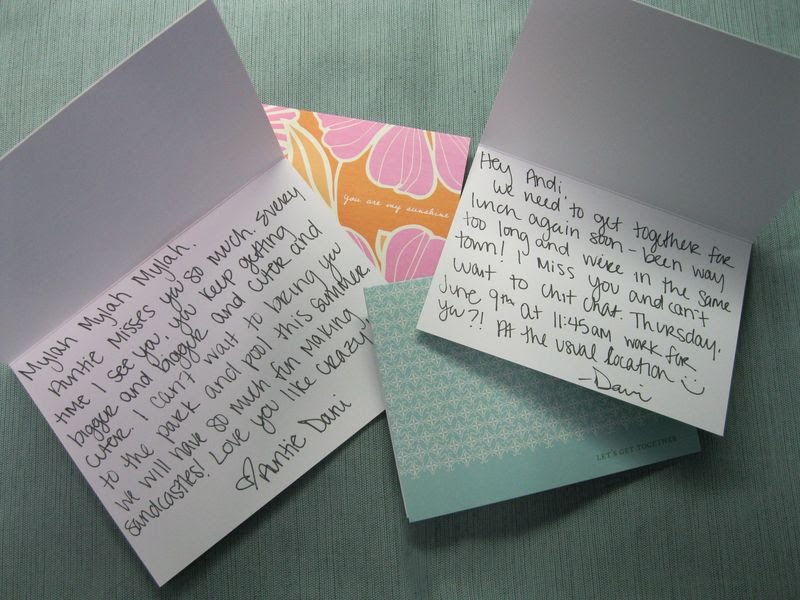 Mylah Mylah Mylah.
Auntie Misses you so much. Every
time I see you you keep getting
bigger and bigger and cuter and
cuter. I can't wait to bring you
to the park and pool this summer
we will have so much fun making
sandcastles! Love you like crazy!
♡Auntie Dani
you are my sunshine
Hey Andi,
We need to get together for
lunch again soon - been way
too long and we're in the same
town! I miss you and can't
wait to chit chat. Thursday,
June 9th at 11:45am work for
you?! At the usual location :)
-Dani
LET'S GET TOGETHER